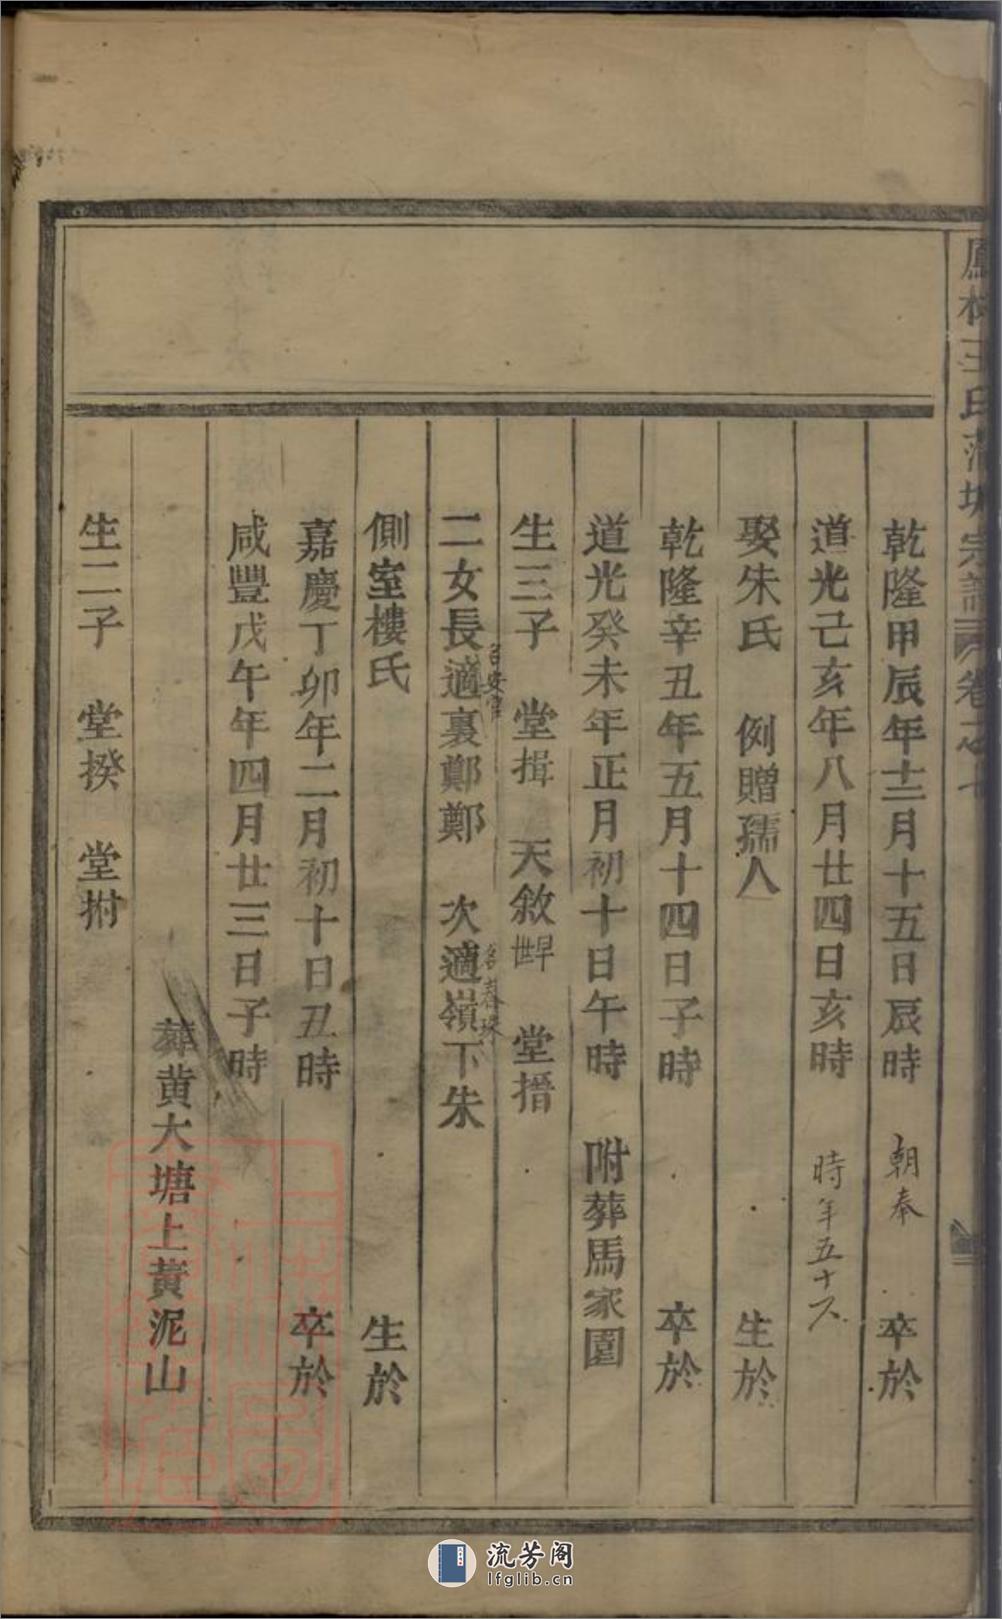 鳳林王氏蒲墟宗譜 卷之七
乾隆甲辰年十二月十五日辰時 朝奉 卒於
道光己亥年八月廿四日亥時 時年五十六
娶朱氏 例贈孺人 生於
乾隆辛丑年五月十四日子時 卒於
道光癸未年正月初十日午時 附葬馬家園
生三子 堂揖 天敘早世 堂搢
二女長適裏鄭鄭 次適嶺下朱
側室樓氏 生於
嘉慶丁卯年二月初十日丑時 卒於
咸豐戊午年四月廿三日子時
葬黄大塘上黃泥山
生二子 堂揆 堂拊
流芳阁
lfglib.cn